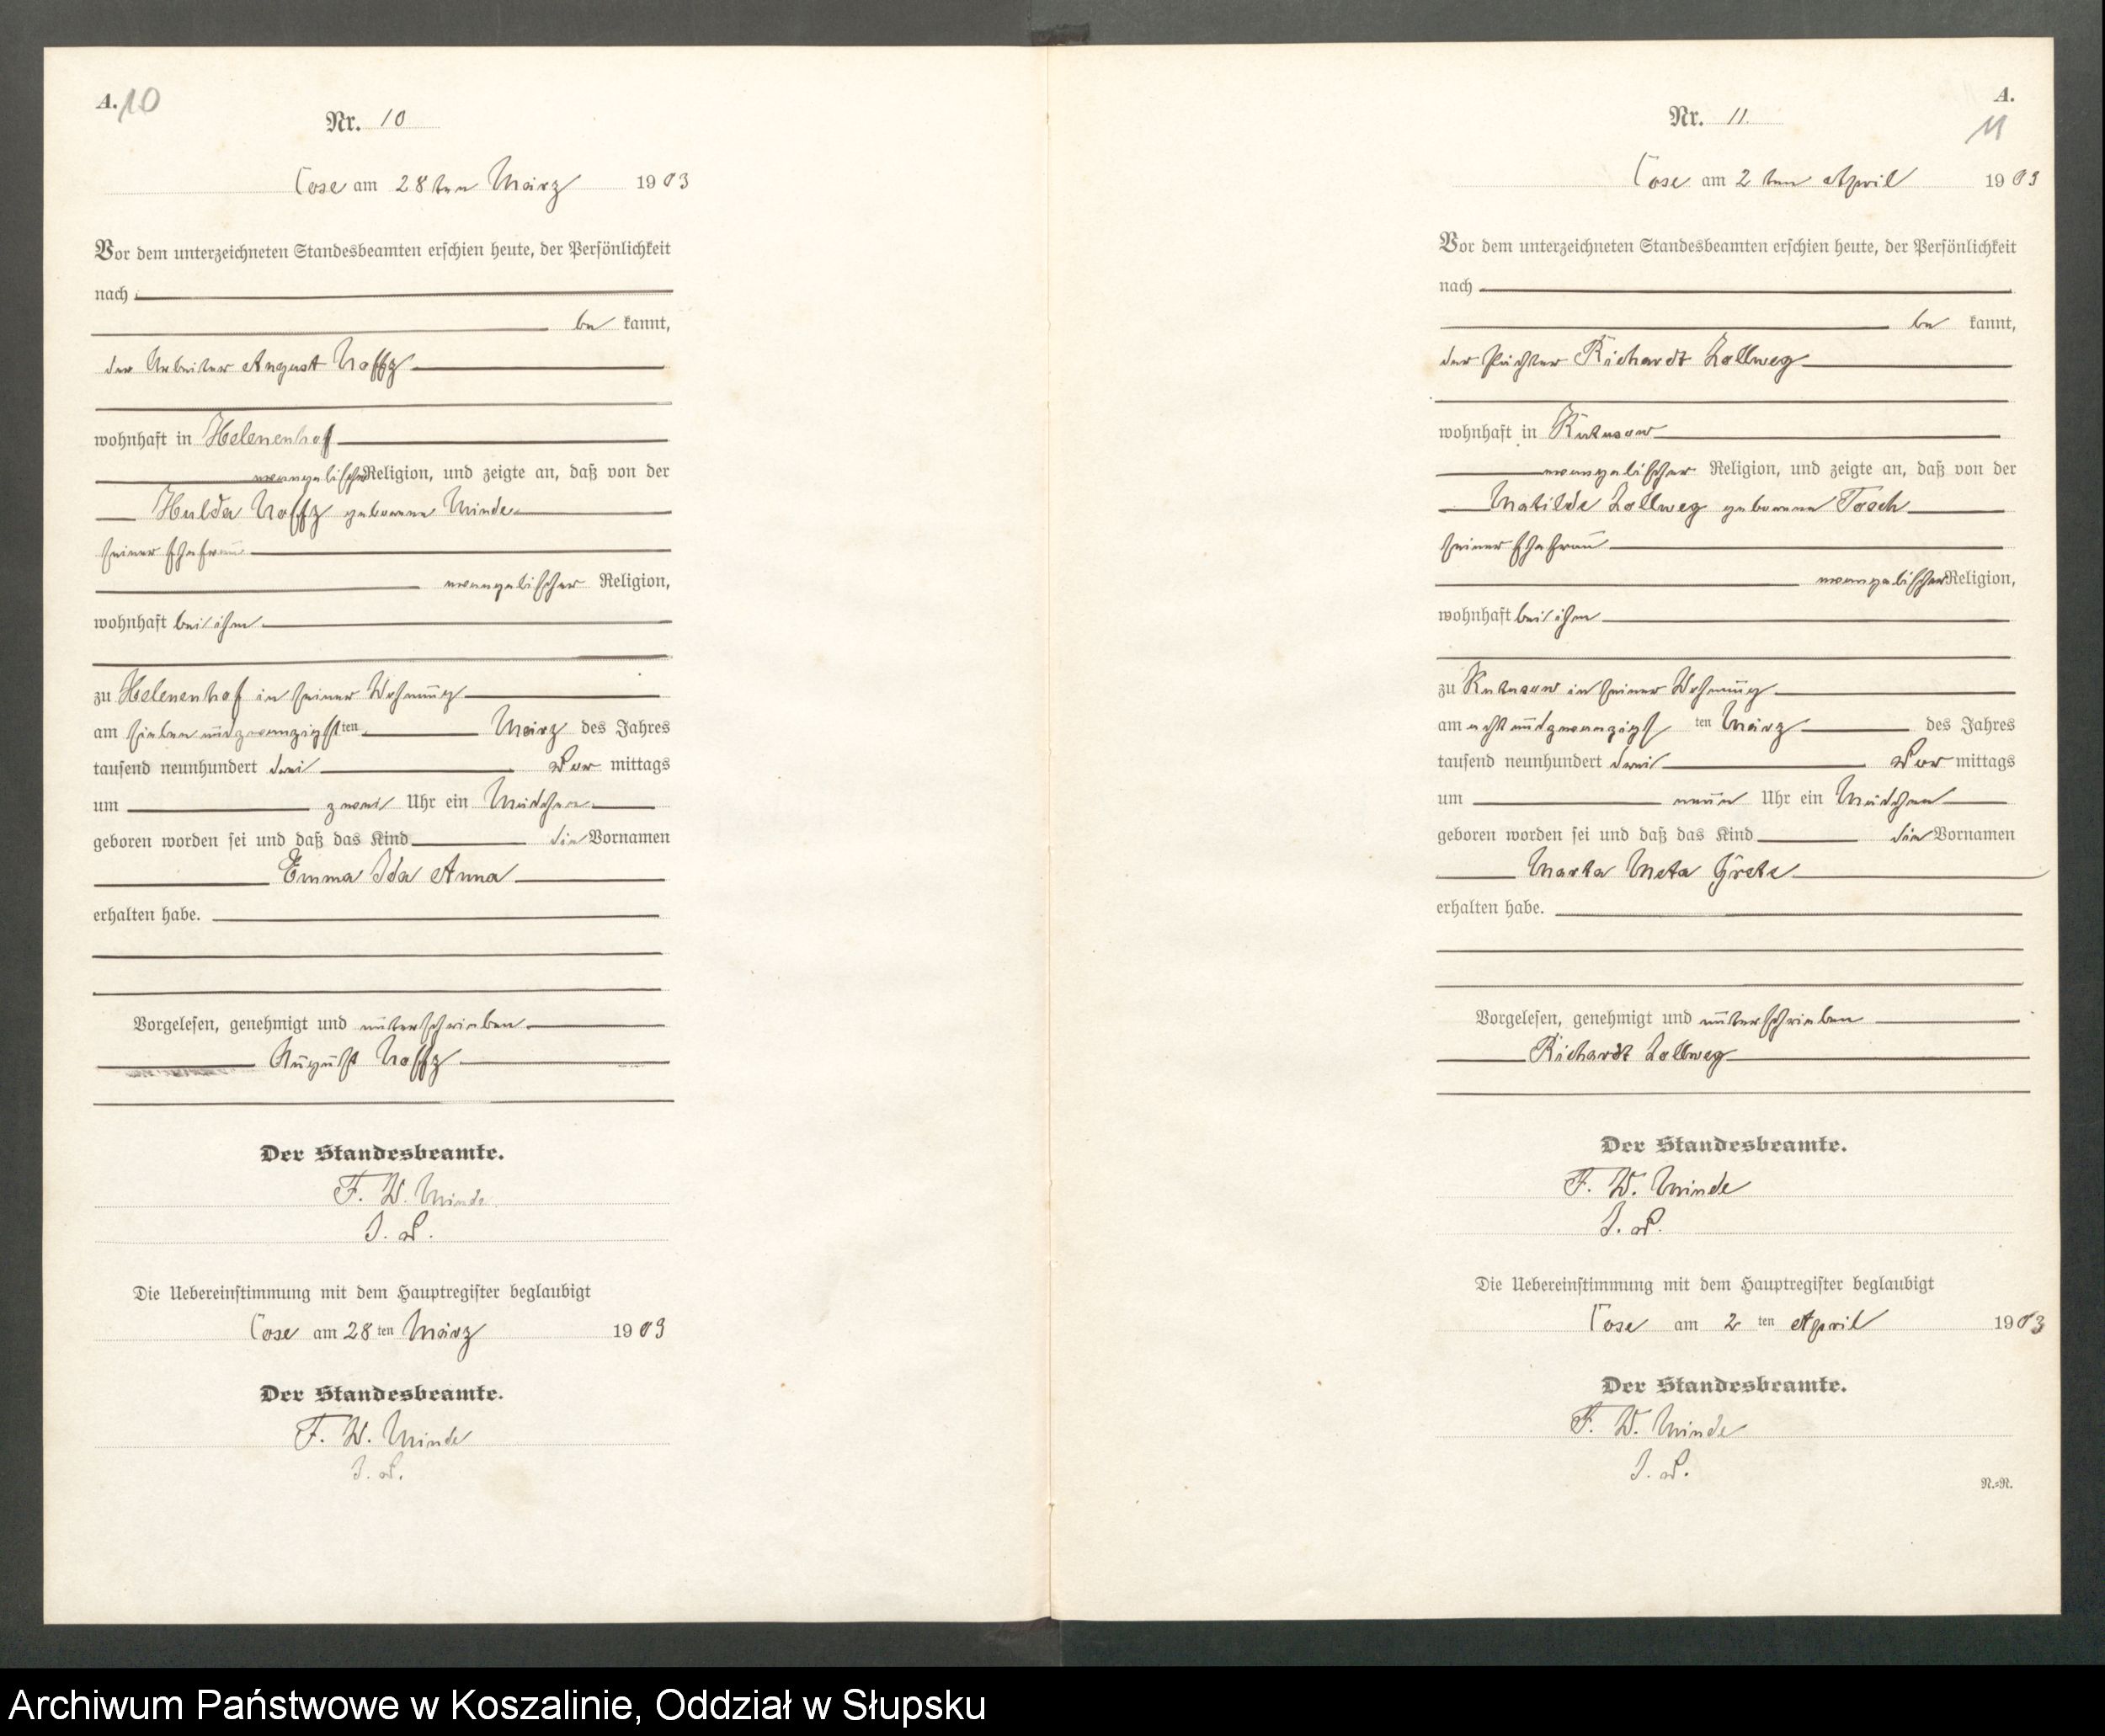 A. 10
Nr. 10
Cose am 28 ten März 1903
Vor dem unterzeichneten Standesbeamten erschien heute, der Persönlichkeit
nach
be kannt,
der Arbeiter August Noffz
wohnhaft in Helenenhof
evangelischer Religion, und zeigte an, daß von der
Hulda Noffz geborene Minde
seiner Ehefrau
evangelischer Religion,
wohnhaft bei ihm
zu Helenenhof in seiner Wohnung
am siebenundzwanzigsten März des Jahres
tausend neunhundert drei Vor mittags
um zwei Uhr ein Mädchen
geboren worden sei und daß das Kind die Vornamen
Emma Ida Anna
erhalten habe.
Vorgelesen, genehmigt und unterschrieben
August Noffz
Der Standesbeamte.
F. W. Minde
I. V.
Die Uebereinstimmung mit dem Hauptregister beglaubigt
Cose am 28 ten März 1903
Der Standesbeamte.
F. W. Minde
I. V.
A.
11
Nr. 11.
Cose am 2 ten April 1903
Vor dem unterzeichneten Standesbeamten erschien heute, der Persönlichkeit
nach
be kannt,
der Pächter Richardt Lollweg
wohnhaft in Kutusow
evangelischer Religion, und zeigte an, daß von der
Matilde Lollweg geborene Tosch
seiner Ehefrau
evangelischer Religion,
wohnhaft bei ihm
zu Kutusow in seiner Wohnung
am achtundzwanzigs ten März des Jahres
tausend neunhundert drei Vor mittags
um neun Uhr ein Mädchen
geboren worden sei und daß das Kind die Vornamen
Marta Meta Grete
erhalten habe.
Vorgelesen, genehmigt und unterschrieben
Richardt Lollweg
Der Standesbeamte.
F. W. Minde
I. V.
Die Uebereinstimmung mit dem Hauptregister beglaubigt
Cose am 2 ten April 1903
Der Standesbeamte.
F. W. Minde
I. V.
N.=R.
Archiwum Państwowe w Koszalinie, Oddział w Słupsku